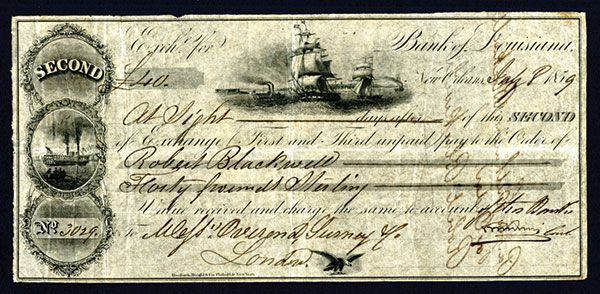 SECOND
Exch.ᵉ for Bank of Louisiana.
£40. New Orleans, July 8 1859
At Sight days after of this SECOND
of Exchange, First and Third unpaid, pay to the Order of
Robert Blackwell
Forty pounds Sterling
Value received and charge the same to account of this Bank
No. 3029. to Mess.rs Overend, Gurney & Co
London.